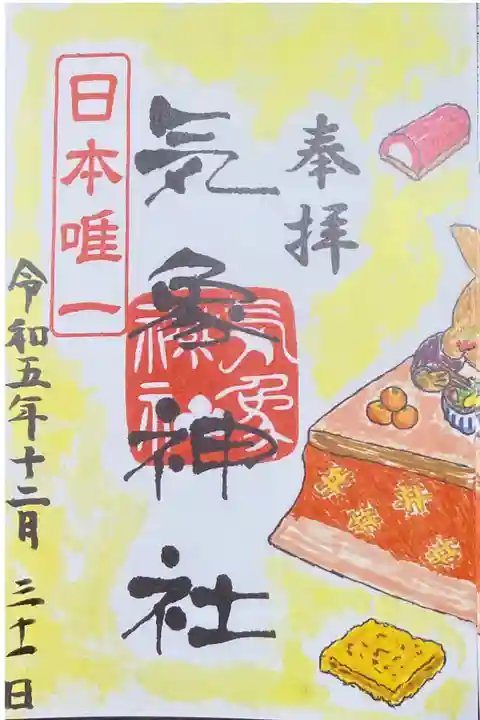 奉拝
気象神社
気象
神社
日本唯一
令和五年十二月 三十一日